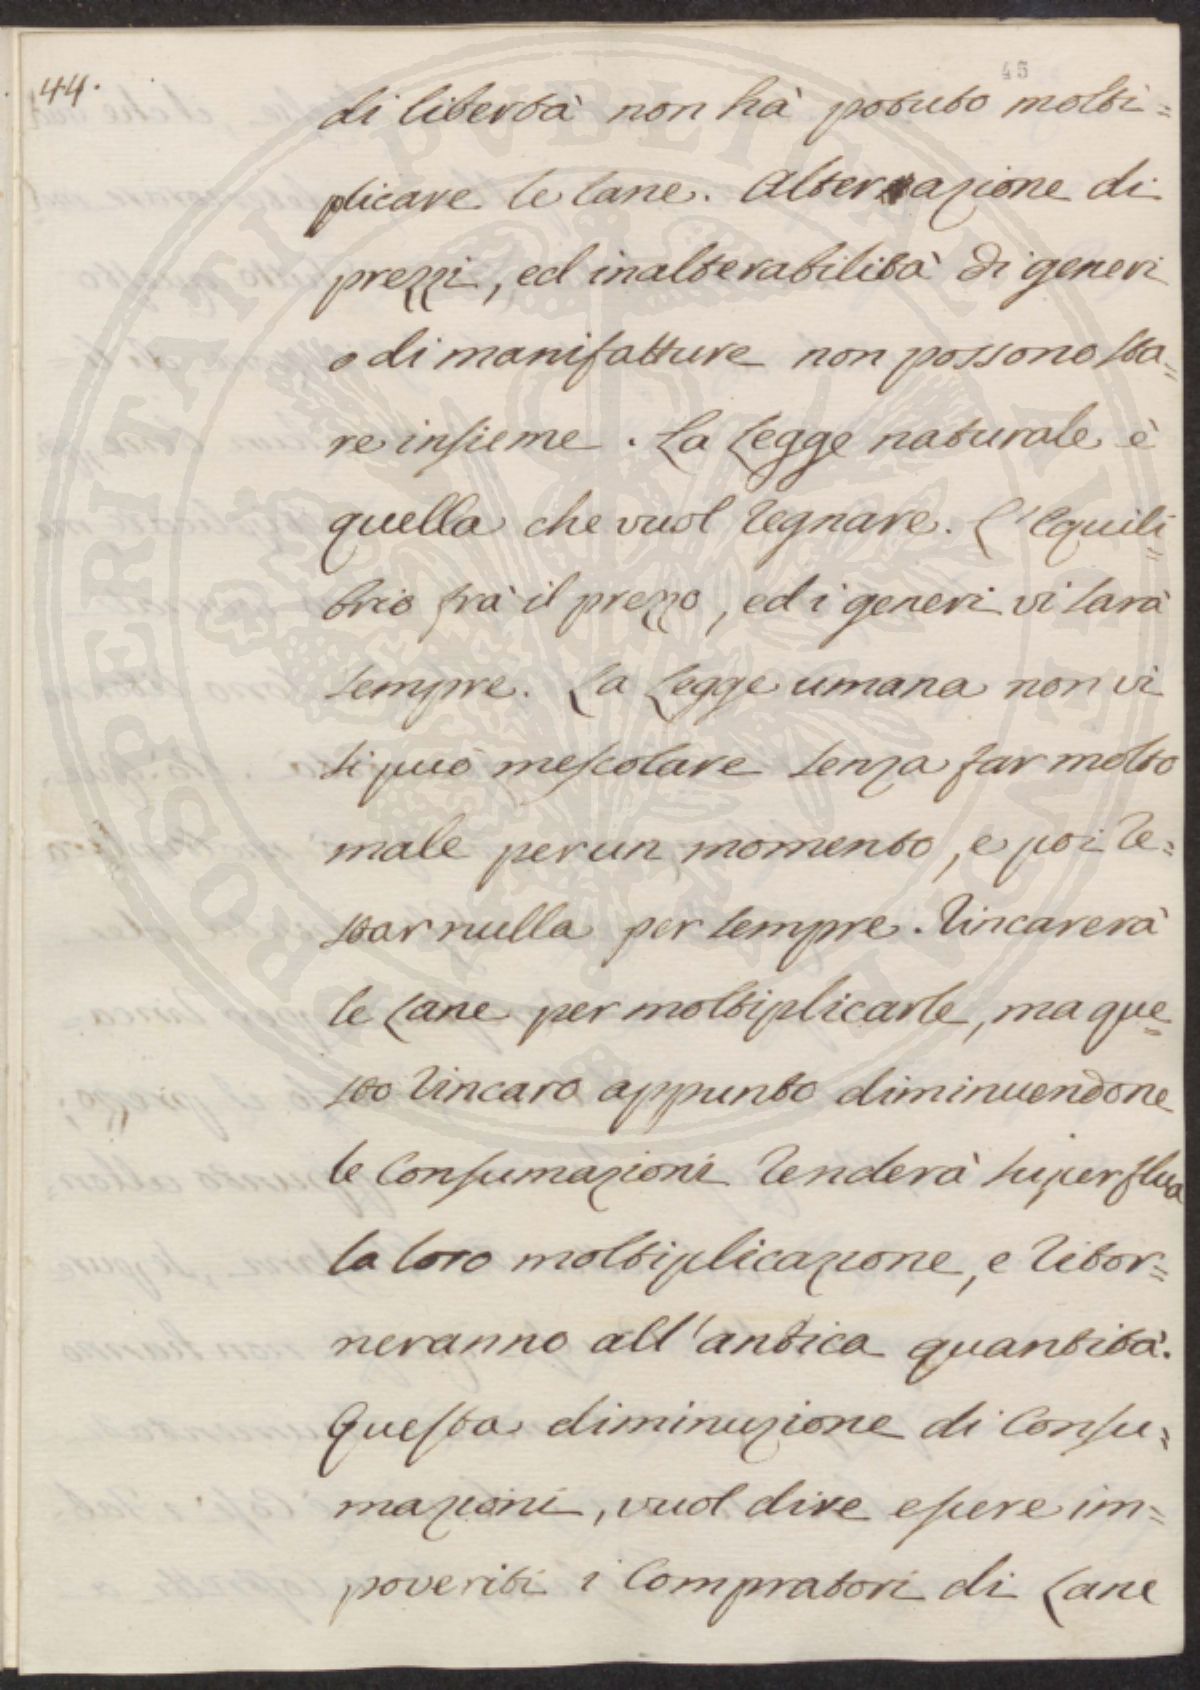 44.
45
di libertà non hà potuto molti=
plicare le lane. Alterazione di
prezzi, ed inalterabilità di generi
o di manifatture non possono sta=
re insieme. La Legge naturale è
quella che vuol regnare. L'Equili=
brio frà il prezzo, ed i generi vi sarà
sempre. La Legge umana non vi
si può mescolare senza far molto
male per un momento, e poi re=
star nulla per sempre. Rincarerà
le Lane per moltiplicarle, ma que=
sto rincaro appunto diminuendone
le Consumazioni renderà superflua
la loro moltiplicazione, e ritor=
neranno all'antica quantità.
Questa diminuzione di Consu=
mazioni, vuol dire essere im=
poveriti i Compratori di Lane
PROSPERITATI PUBLICAE AUGENDAE